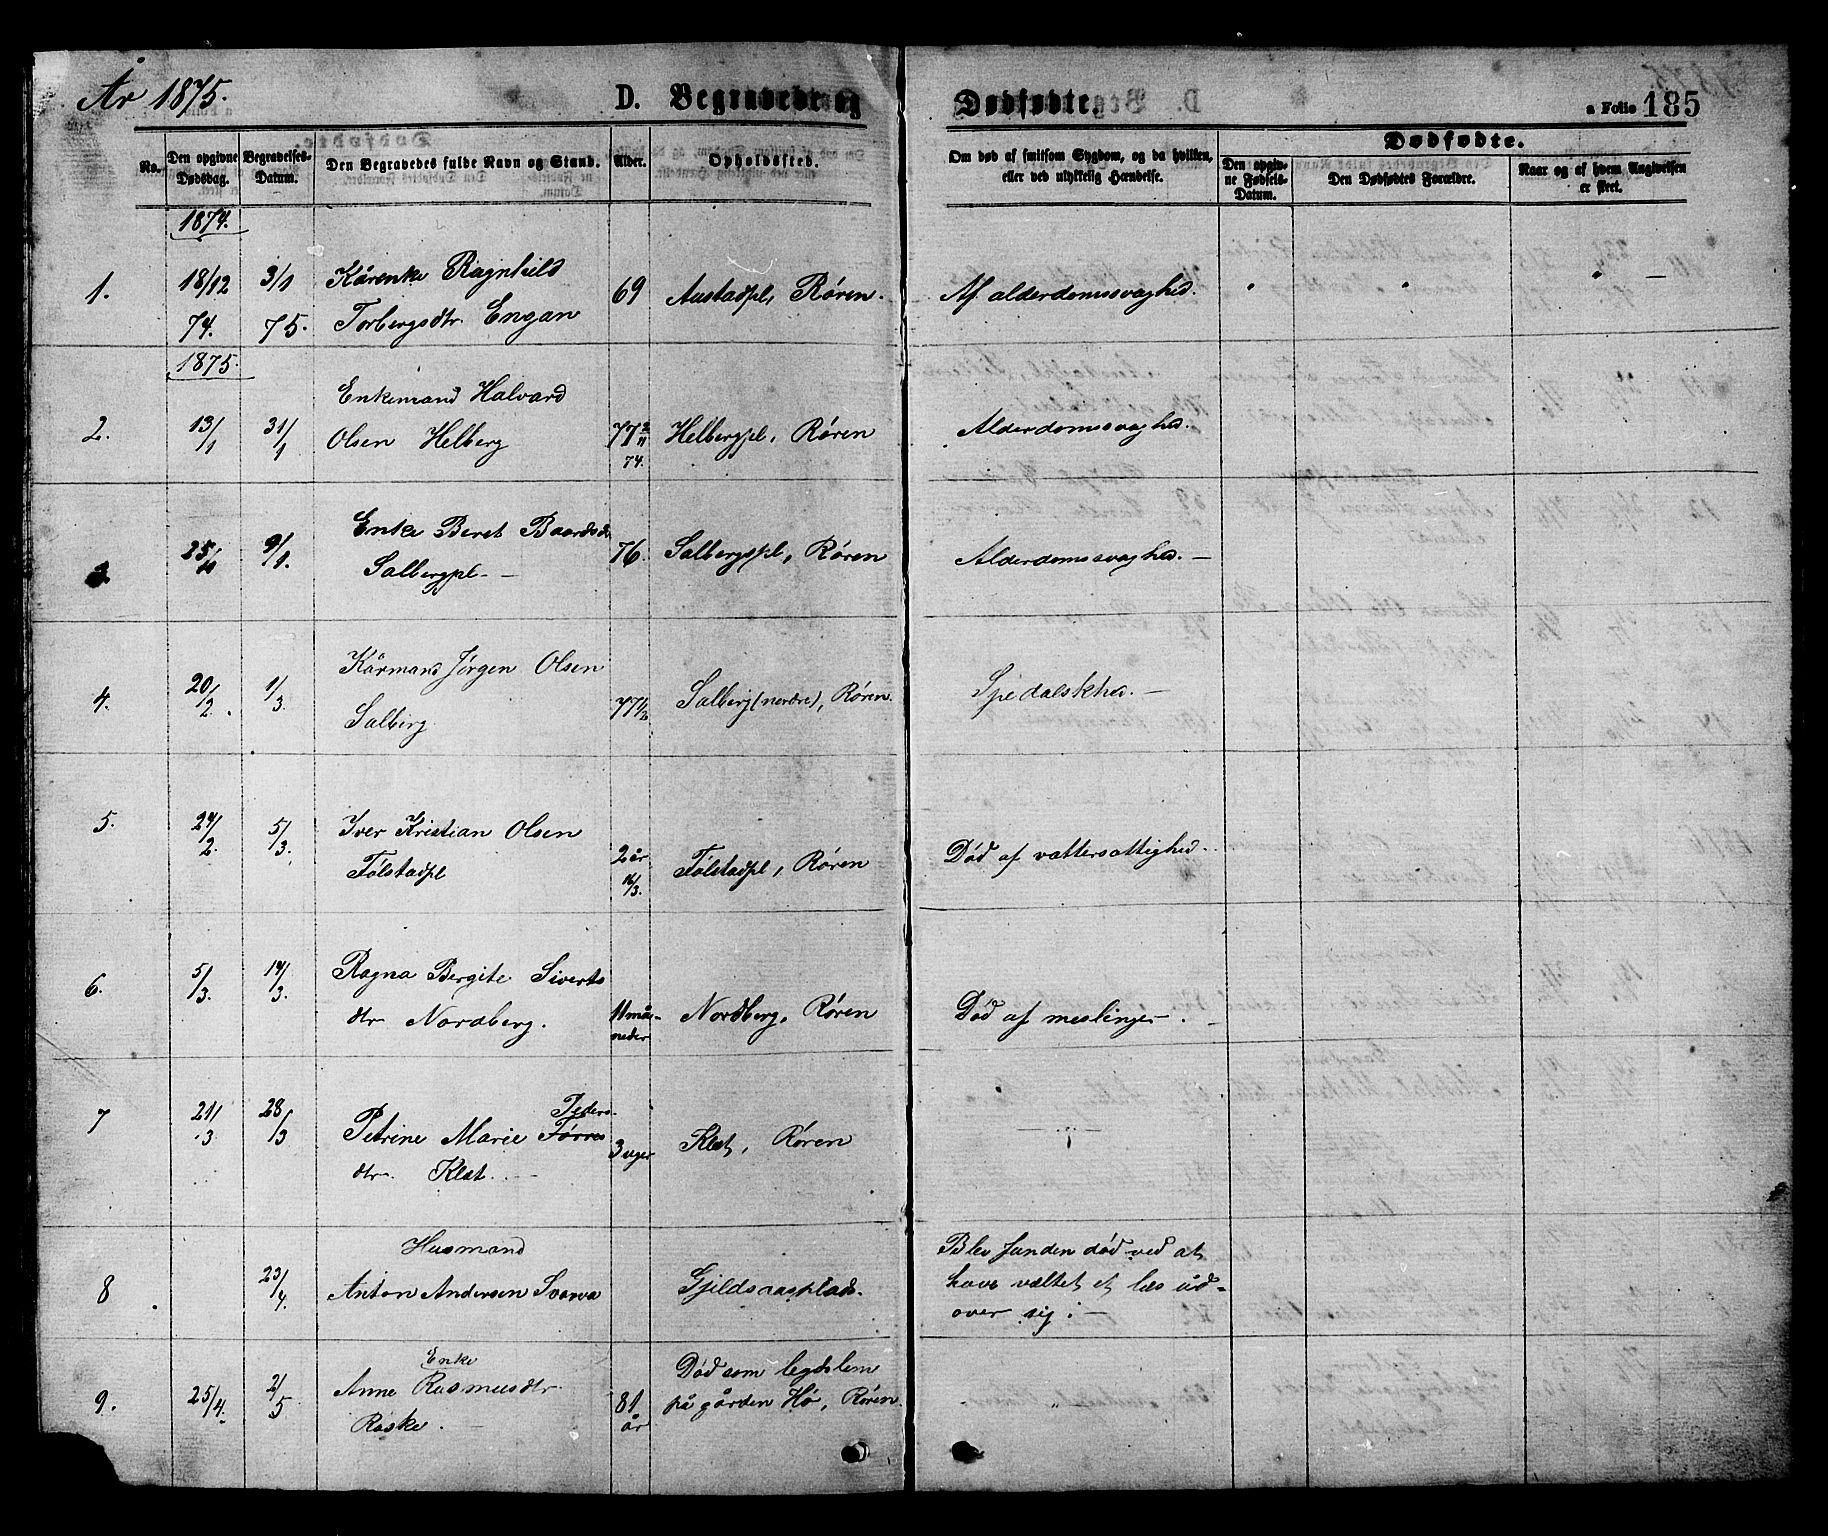 År 1875.
D. Begravede og Dødfødte.
a Folio 185
No.
Den opgivne Dødsdag.
Begravelses-Datum.
Den Begravedes fulde Navn og Stand.
Alder.
Opholdssted.
Om død af smitsom Sygdom, og da hvilken,
eller ved ulykkelig Hændelse.
Dødfødte.
Den opgiv-
ne Fødsels-
Datum.
Den Dødfødtes Forældre.
Naar og af hvem Angivelsen
er skeet.
1874.
1.
18/12 74.
3/1 75.
Kårenke Ragnhild
Torbergsdtr Engan
69
Austadpl, Røren.
Af alderdomssvaghed.
1875.
2.
13/1
31/1
Enkemand Halvard
Olsen Helberg
77
74.
Helbergpl, Røren
Alderdomssvaghed.
25/
9/1.
Enke Beret Baardsd
Salbergpl -
76.
Salbergspl, Røren
Alderdomssvaghed. -
4.
20/2.
1/3.
Kårmand Jørgen Olsen
Salberg.
77 1/2
Salberg (nordre), Røren
Spedalskhed. -
5.
24/2.
5/3.
Iver Kristian Olsen
Følstadpl
2 år
16/3.
Følstadpl, Røren
Død af vattersottighed.
6.
5/3.
14/3.
Ragna Bergite Siverts
dtr Nordberg.
11 må-
neder
Nordberg, Røren
Død af meslinger.
7
21/3
28/3
Peders-
Petrine Marie
dtr. Klæt. -
3 uger
Klæt, Røren
8
23/4.
Husmand
Anton Andersen Svarva
Gjeldsaasplads.
Blev funden død ved at
have væltet et læs ud-
over sig. -
9.
25/4.
2/5
Enke
Anne Rasmusdtr
Røske. -
81
år
Død som legdslem
på gården Hø, Røren.